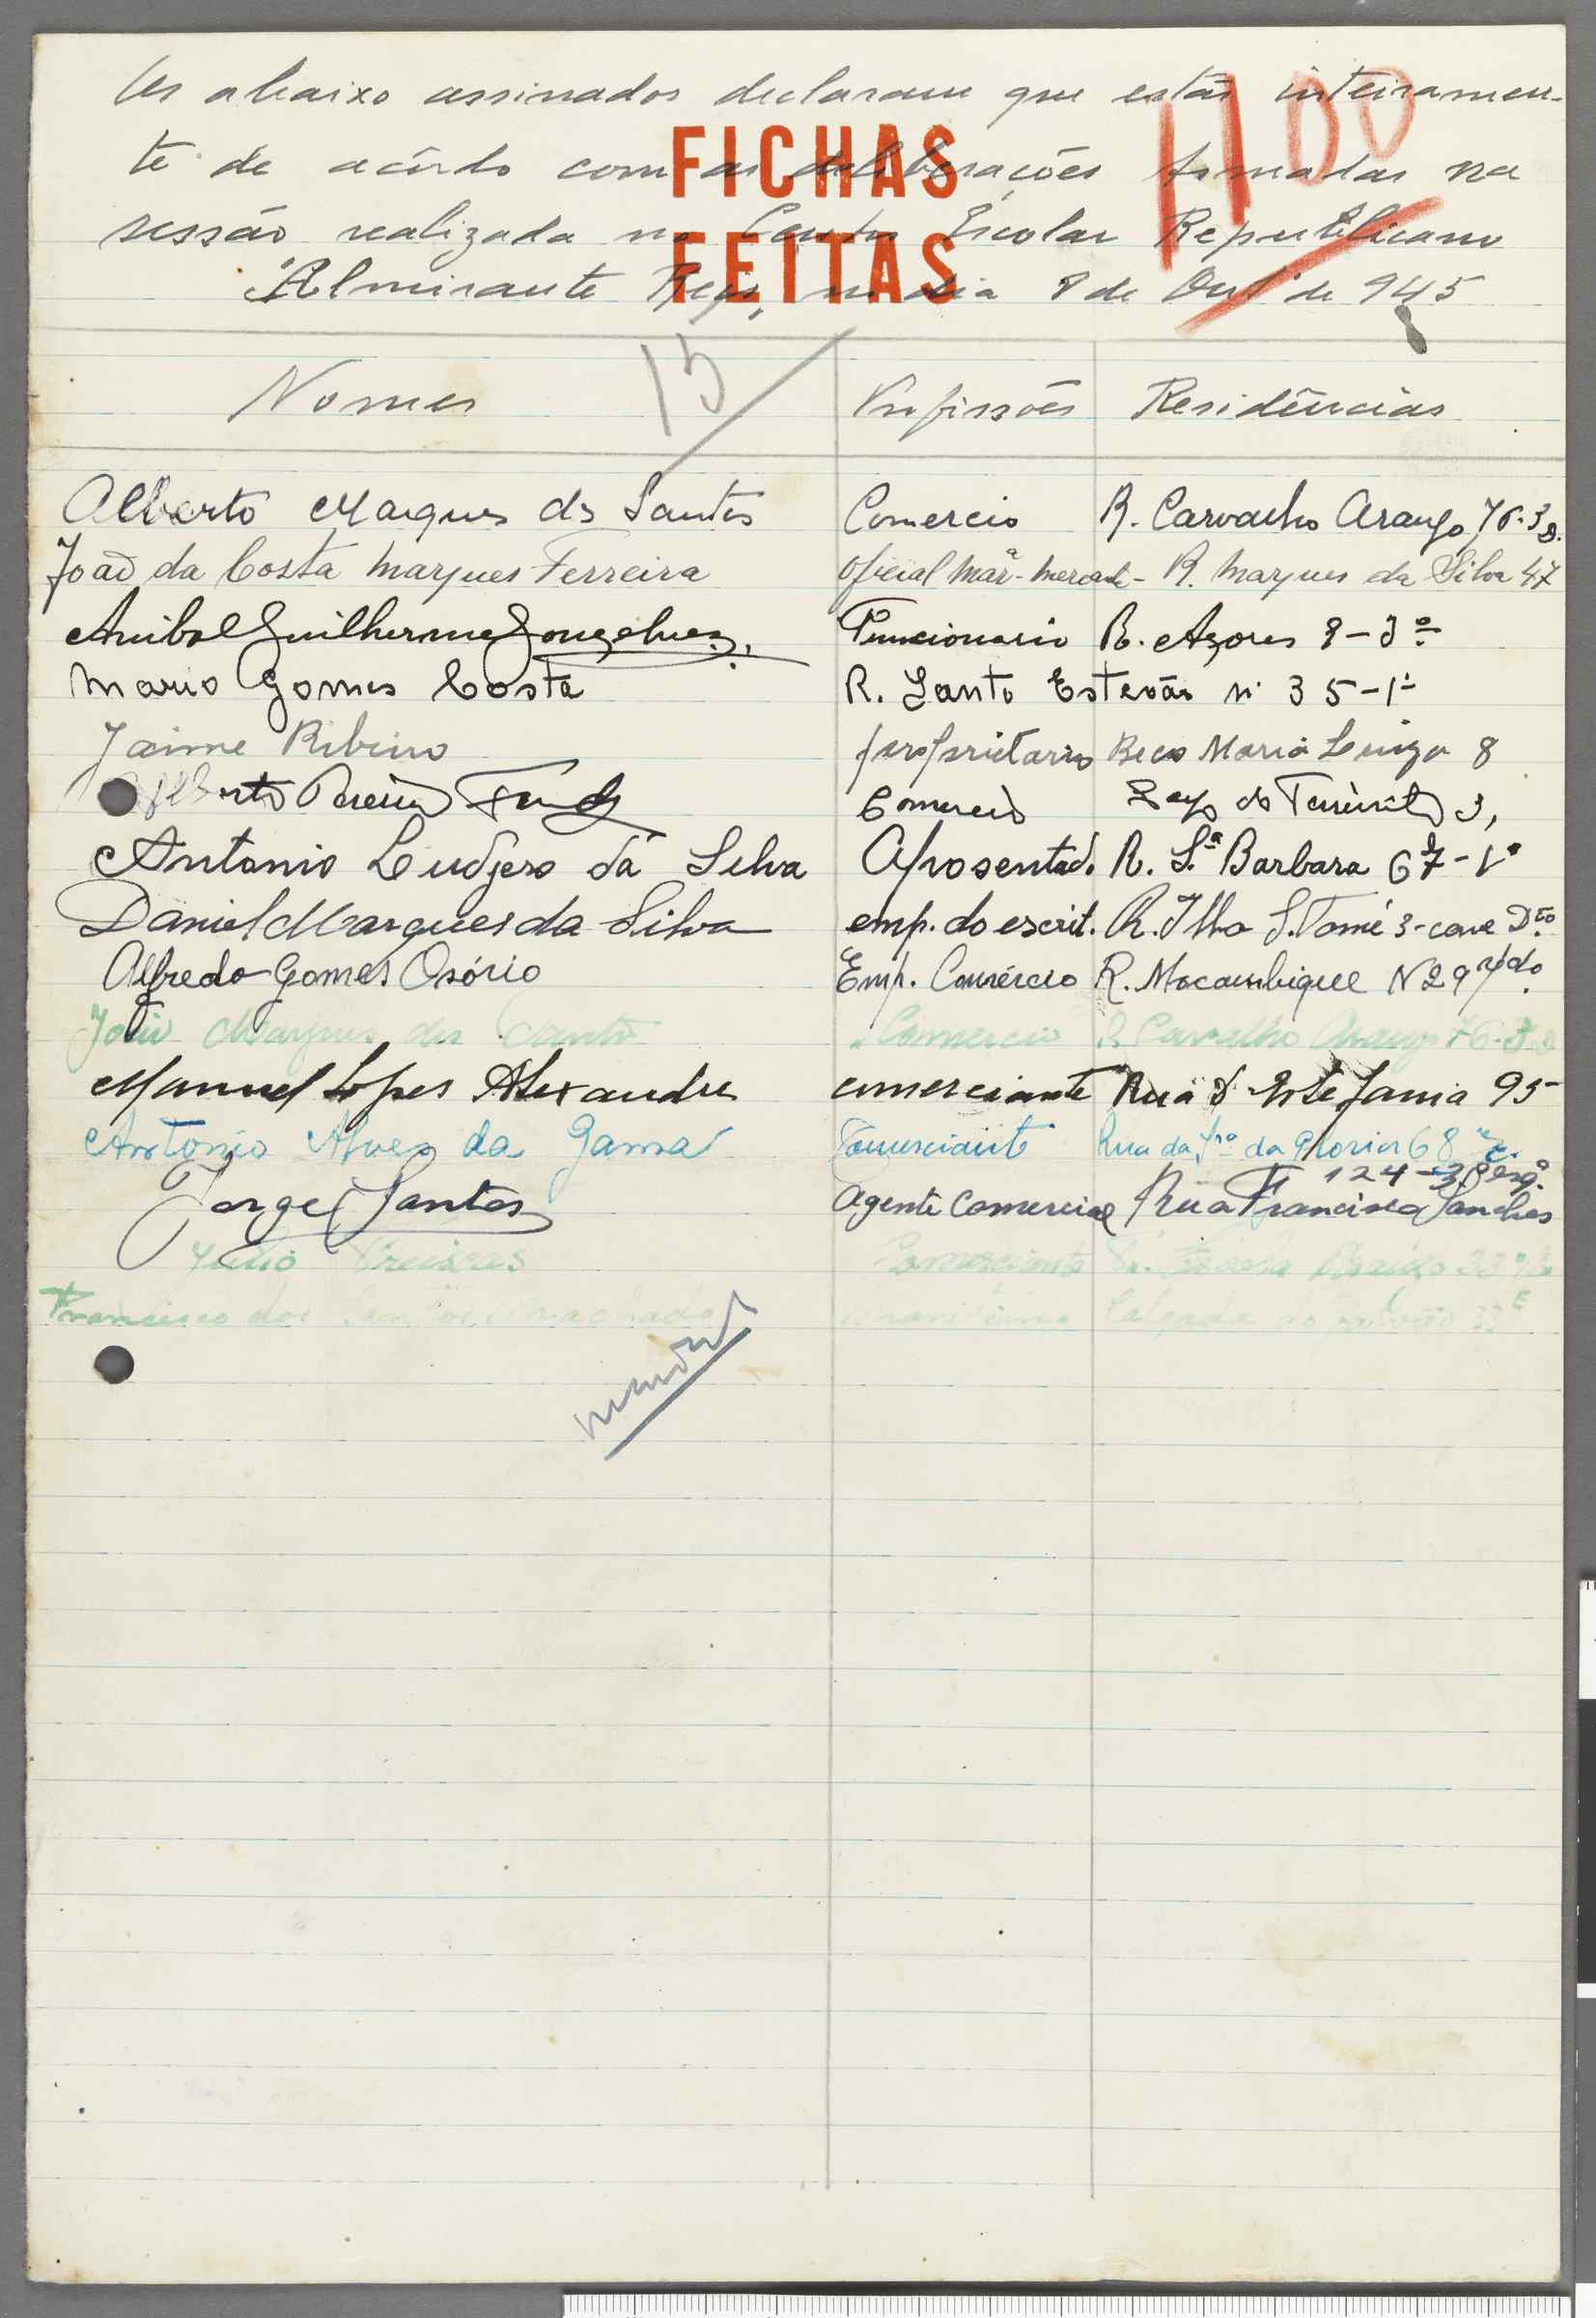 Os abaixo assinados declaram que estão inteiramen-
te de acôrdo com as deliberações tomadas na
sessão realizada no Centro Escolar Republicano
Almirante Reis, no dia 8 de Outº de 945
FICHAS
FEITAS
1100
15
Nomes Profissões Residências
Alberto Marques dos Santos Comercio R. Carvalho Araujo, 76-3 D.
João da Costa Marques Ferreira Oficial marª mercante - R. Marques da Silva 47
Anibal Guilherme Gonçalves Funcionario R. Açores 8-3º
Mario Gomes Costa R. Santo Estevão nº 35-1º
Jaime Ribeiro proprietario Beco Maria Luiza 8
Alberto Pereira Comercio do Terreirito 3,
Antonio Ludjero da Silva Aposentado R. Stª Barbara 67-1º
Daniel Marques da Silva emp. do escrit. R. Ilha S. Tomé 3-cave Dtº
Alfredo Gomes Osório Emp. Comércio R. Mocambique N 29 r/do
Marques dos Santos Comercio R Carvalho Araujo 76-3 D
Manuel Lopes Alexandre comerciante Rua D. Estefania 95
Antonio Alves da Gama Comerciante Rua da Srª da Gloria 68 r/c.
124-3º esqº
Jorge Santos Agente Comercial Rua Francisco Sanches
Julio Comerciante
Francisco dos Santos Machado Calçada do 33 E